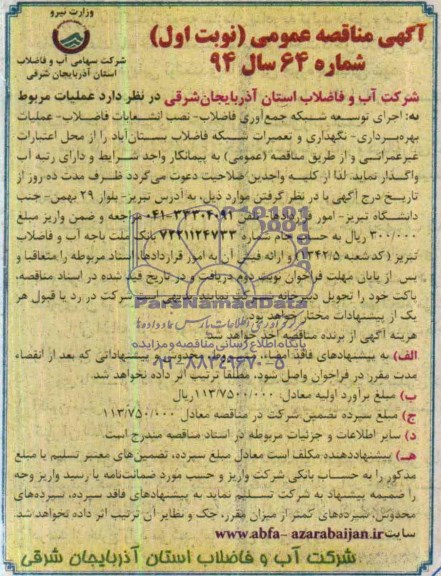 وزارت نیرو
شرکت سهامی آب و فاضلاب
استان آذربایجان شرقی
آگهی مناقصه عمومی (نوبت اول)
شماره ۶۴ سال ۹۴
شرکت آب و فاضلاب استان آذربایجان‌شرقی در نظر دارد عملیات مربوط
به: اجرای توسعه شبکه جمع‌آوری فاضلاب- نصب انشعابات فاضلاب- عملیات
بهره‌برداری- نگهداری و تعمیرات شبکه فاضلاب بستان‌آباد را از محل اعتبارات
غیرعمرانی و از طریق مناقصه (عمومی) به پیمانکار واجد شرایط و دارای رتبه آب
واگذار نماید. لذا از کلیه واجدین صلاحیت دعوت می‌گردد ظرف مدت ده روز از
تاریخ درج آگهی با در نظر گرفتن موارد ذیل، به آدرس تبریز- بلوار ۲۹ بهمن- جنب
دانشگاه تبریز- امور قراردادها تلفن مراجعه و ضمن واریز مبلغ
۳۰۰/۰۰۰ ریال به حساب جام شماره ۷۲۲۱۱۲۴۷۳۳ بانک ملت باجه آب و فاضلاب
تبریز (کدشعبه و ارائه فیش آن به امور قراردادها، اسناد مربوطه را متعاقبا و
پس از پایان مهلت فراخوان نوبت دوم دریافت و در تاریخ قید شده در اسناد مناقصه،
پاکت خود را تحویل دبیرخانه شرکت نمایند. شرکت در رد یا قبول هر
یک از پیشنهادات مختار خواهد بود.
هزینه آگهی از برنده مناقصه اخذ خواهد شد.
ParsNamadData
مرکز فرآوری اطلاعات پارس نماد داده‌ها
پایگاه اطلاع رسانی مناقصه و مزایده
الف) به پیشنهادهای فاقد امضاء، مشروط، مخدوش و پیشنهاداتی که بعد از انقضاء
مدت مقرر در فراخوان واصل شود، مطلقاً ترتیب اثر داده نخواهد شد.
ب) مبلغ برآورد اولیه معادل: ریال
ج) مبلغ سپرده تضمین شرکت در مناقصه معادل: ۱۱۳/۷۵۰/۰۰۰
د) سایر اطلاعات و جزئیات مربوطه در اسناد مناقصه مندرج است.
هـ) پیشنهاددهنده مکلف است معادل مبلغ سپرده، تضمین‌های معتبر تسلیم یا مبلغ
مذکور را به حساب بانکی شرکت واریز و حسب مورد ضمانت‌نامه یا رسید واریز وجه
را ضمیمه پیشنهاد به شرکت تسلیم نماید به پیشنهادهای فاقد سپرده، سپرده‌های
مخدوش، سپرده‌های کمتر از میزان مقرر، چک و نظایر آن ترتیب اثر داده نخواهد شد.
سایت www.abfa-azarabaijan.ir
شرکت آب و فاضلاب استان آذربایجان شرقی